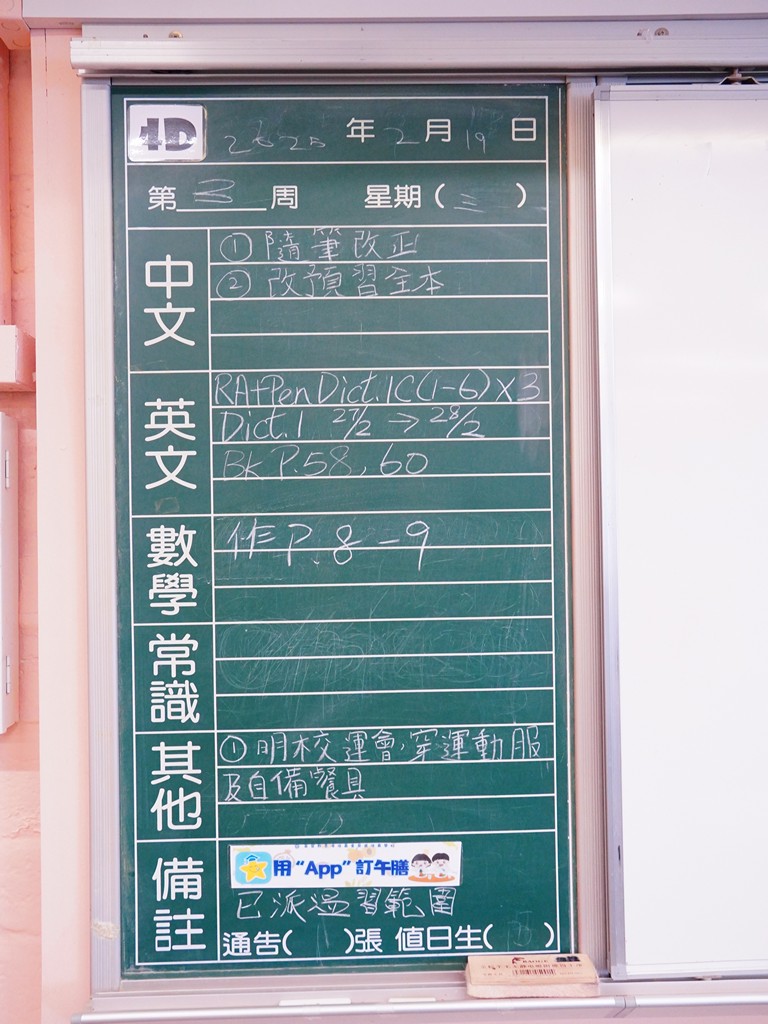 1D 2025 年 2 月 19 日
第 3 周 星期 ( 三 )
中文
① 隨筆改正
② 改預習全本
英文
RA+Pen Dict.1C(1-6) x 3
Dict.1 27/2 → 28/2
BK P.58, 60
數學
作 P. 8 - 9
常識
其他
① 明校運會，穿運動服
及自備餐具
備註
用“App”訂午膳
已派溫習範圍
通告( )張 值日生( )